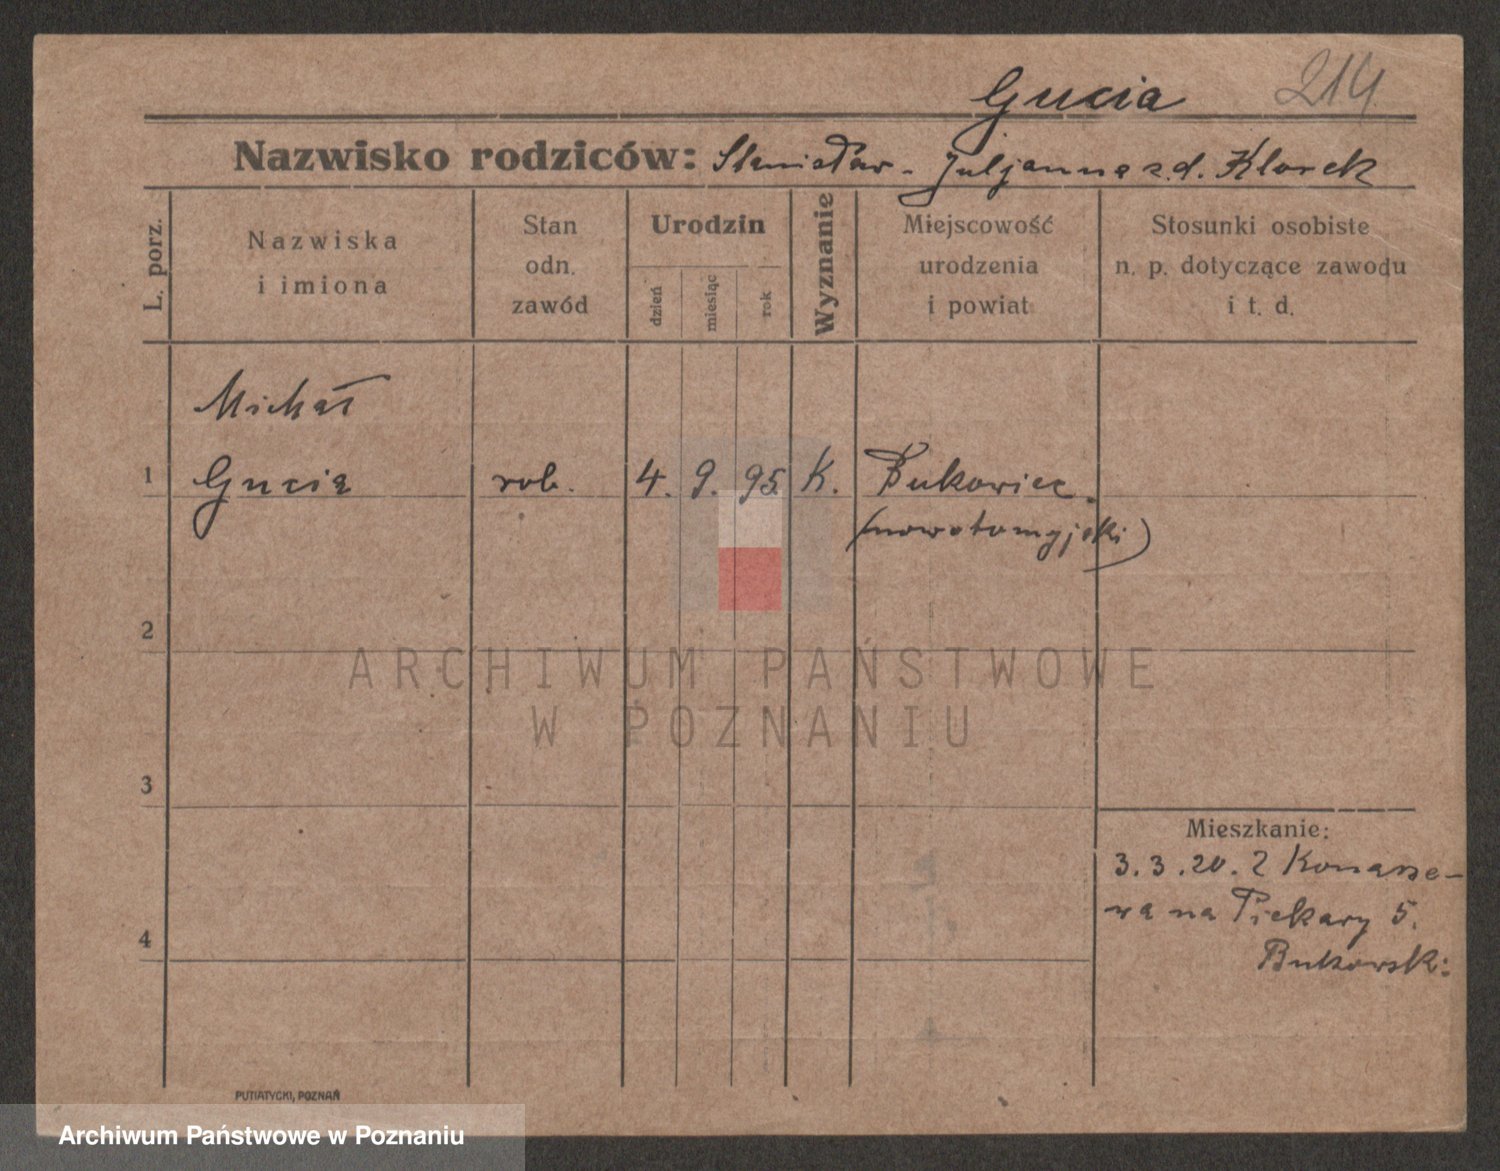 Gucia 214
Nazwisko rodziców: Stanisław - Juljanna z.d. Klorek
L. porz.
Nazwiska
i imiona
Stan
odn.
zawód
Urodzin
dzień
miesiąc
rok
Wyznanie
Miejscowość
urodzenia
i powiat
Stosunki osobiste
n. p. dotyczące zawodu
i t. d.
Michał
1 Gucia rob. 4. 9. 95 K. Bukowiec.
(nowotomyjski)
2
ARCHIWUM PAŃSTWOWE
W POZNANIU
3
Mieszkanie:
3.3.20. Z Konarze-
wa na Piekary 5.
Bukowsk:
4
PUTIATYCKI, POZNAŃ
Archiwum Państwowe w Poznaniu